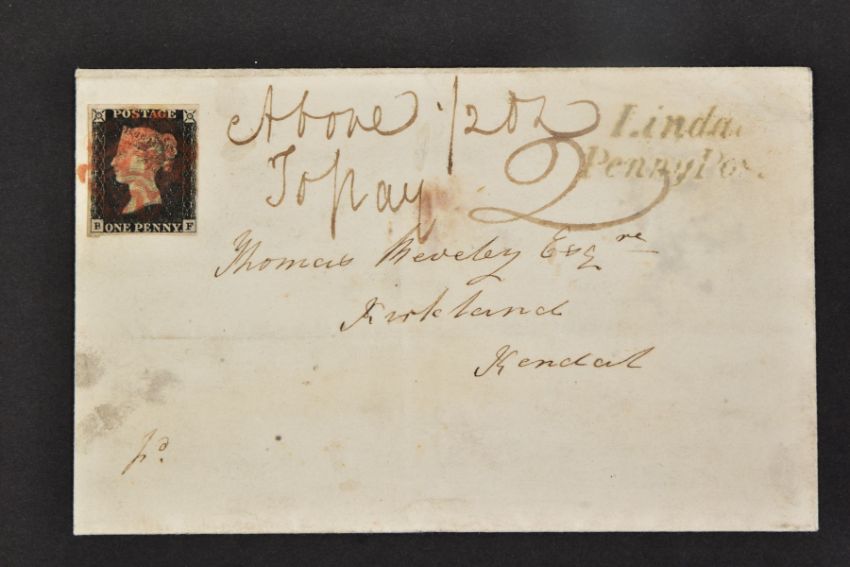 POSTAGE
B F
ONE PENNY
Above 1/2 Oz
To pay 2
Linda
Penny Pos
Thomas Reveley Esqre
Kirkland
Kendal
pd.